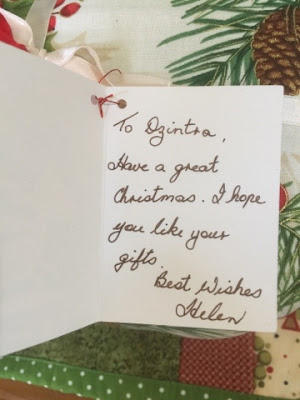 To Dzintra,
Have a great
Christmas. I hope
you like your
gifts.
Best Wishes
Helen